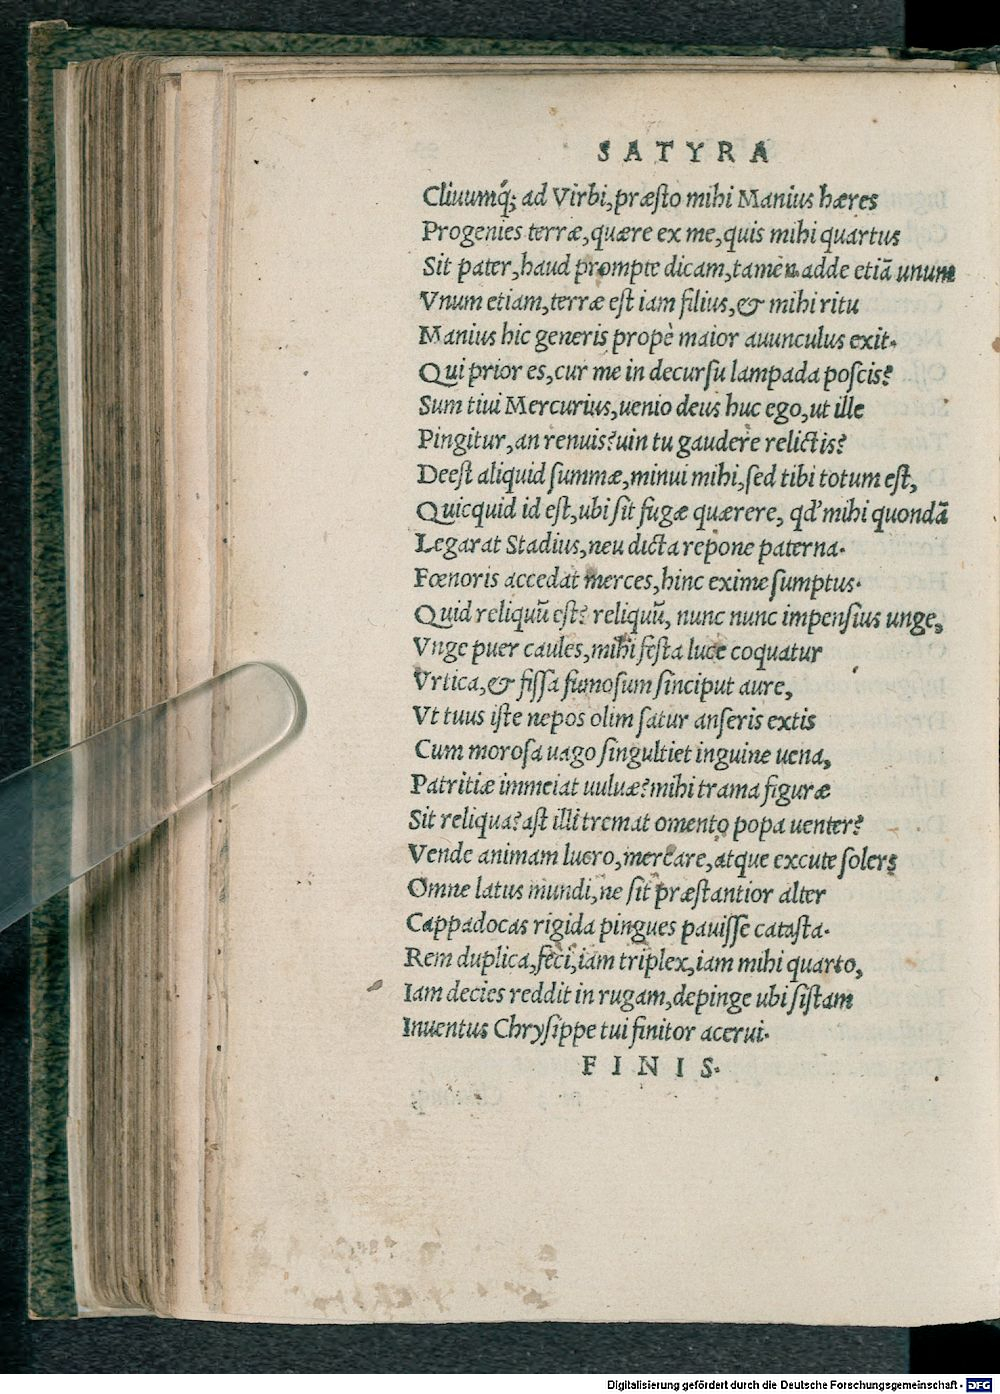 SATYRA
Cliuumq́; ad Virbi, præſto mihi Manius hæres
Progenies terræ, quære ex me, quis mihi quartus
Sit pater, haud prompte dicam, tamen adde etiā unum
Vnum etiam, terræ eſt iam filius, & mihi ritu
Manius hic generis propè maior auunculus exit.
Qui prior es, cur me in decurſu lampada poſcis?
Sum tiui Mercurius, uenio deus huc ego, ut ille
Pingitur, an renuis? uin tu gaudere relictis?
Deeſt aliquid ſummæ, minui mihi, ſed tibi totum eſt,
Quicquid id eſt, ubi ſit fugæ quærere, qd' mihi quondā
Legarat Stadius, neu dicta repone paterna.
Fœnoris accedat merces, hinc exime ſumptus.
Quid reliquū eſt? reliquū, nunc nunc impenſius unge,
Vnge puer caules, mihi feſta luce coquatur
Vrtica, & fiſſa fumoſum ſinciput aure,
Vt tuus iſte nepos olim ſatur anſeris extis
Cum moroſa uago ſingultiet inguine uena,
Patritiæ immeiat uuluæ? mihi trama figuræ
Sit reliqua? aſt illi tremat omento popa uenter?
Vende animam lucro, mercare, atque excute ſolers
Omne latus mundi, ne ſit præſtantior alter
Cappadocas rigida pingues pauiſſe cataſta.
Rem duplica, feci, iam triplex, iam mihi quarto,
Iam decies reddit in rugam, depinge ubi ſiſtam
Inuentus Chryſippe tui finitor acerui.
FINIS.
Digitalisierung gefördert durch die Deutsche Forschungsgemeinschaft - DFG